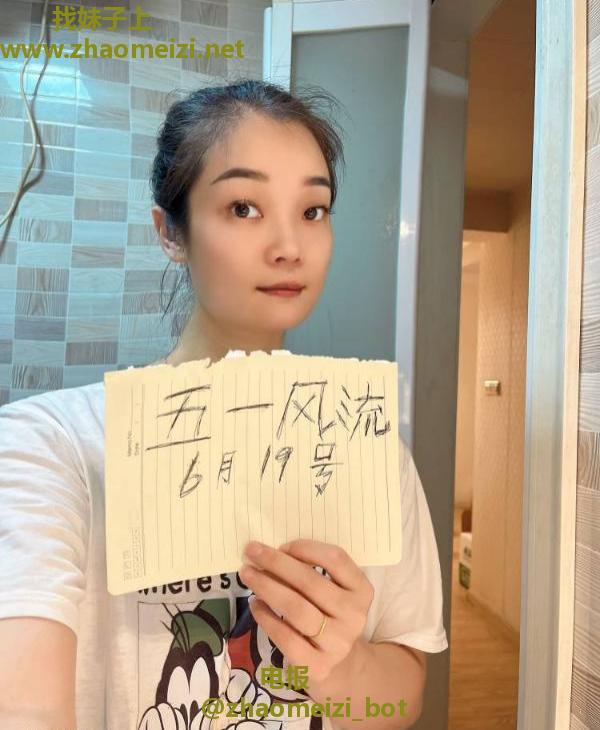 找妹子上
www.zhaomeizi.net
五一风流
6月19号
Memo No.
Date
where's
电报
@zhaomeizi_bot